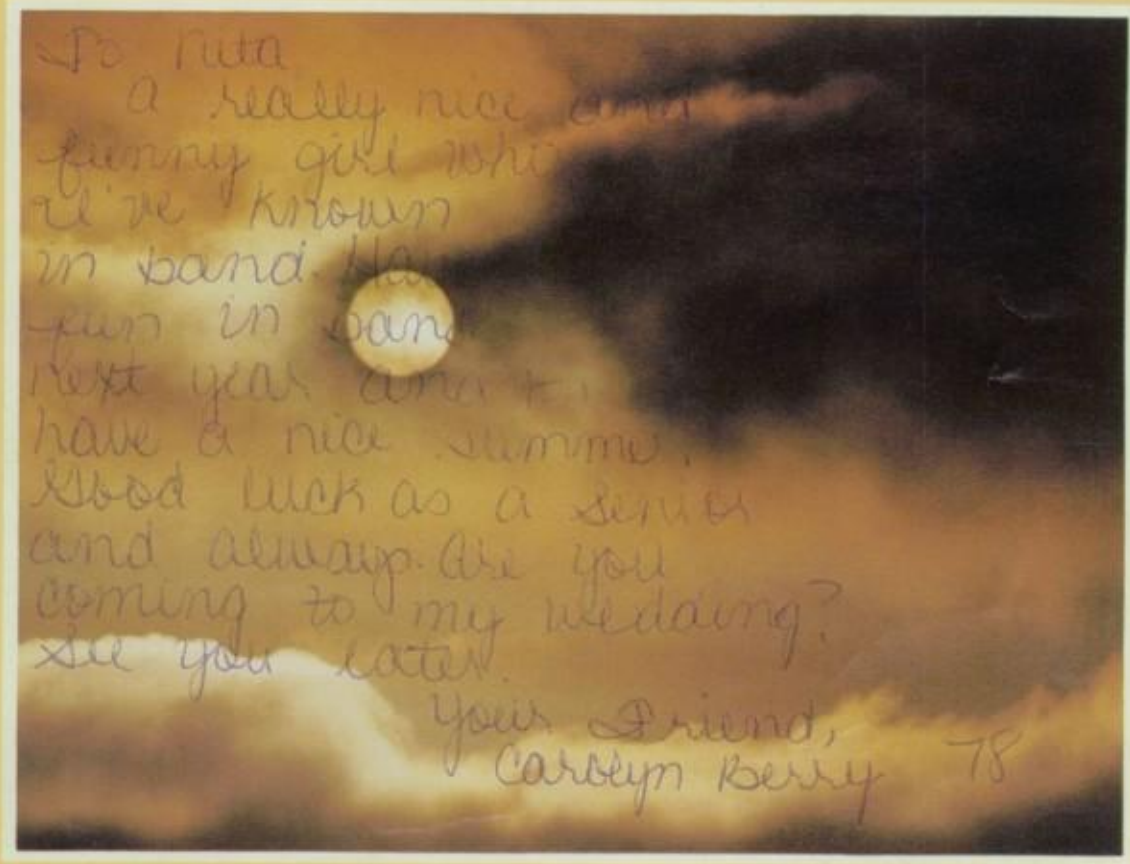 To Rita
A really nice and
funny girl who
I've known
in band. Have
fun in band
next year and
have a nice summer.
Good luck as a senior
and always. Are you
coming to my wedding?
See you later.
Your Friend,
Carolyn Berry 78